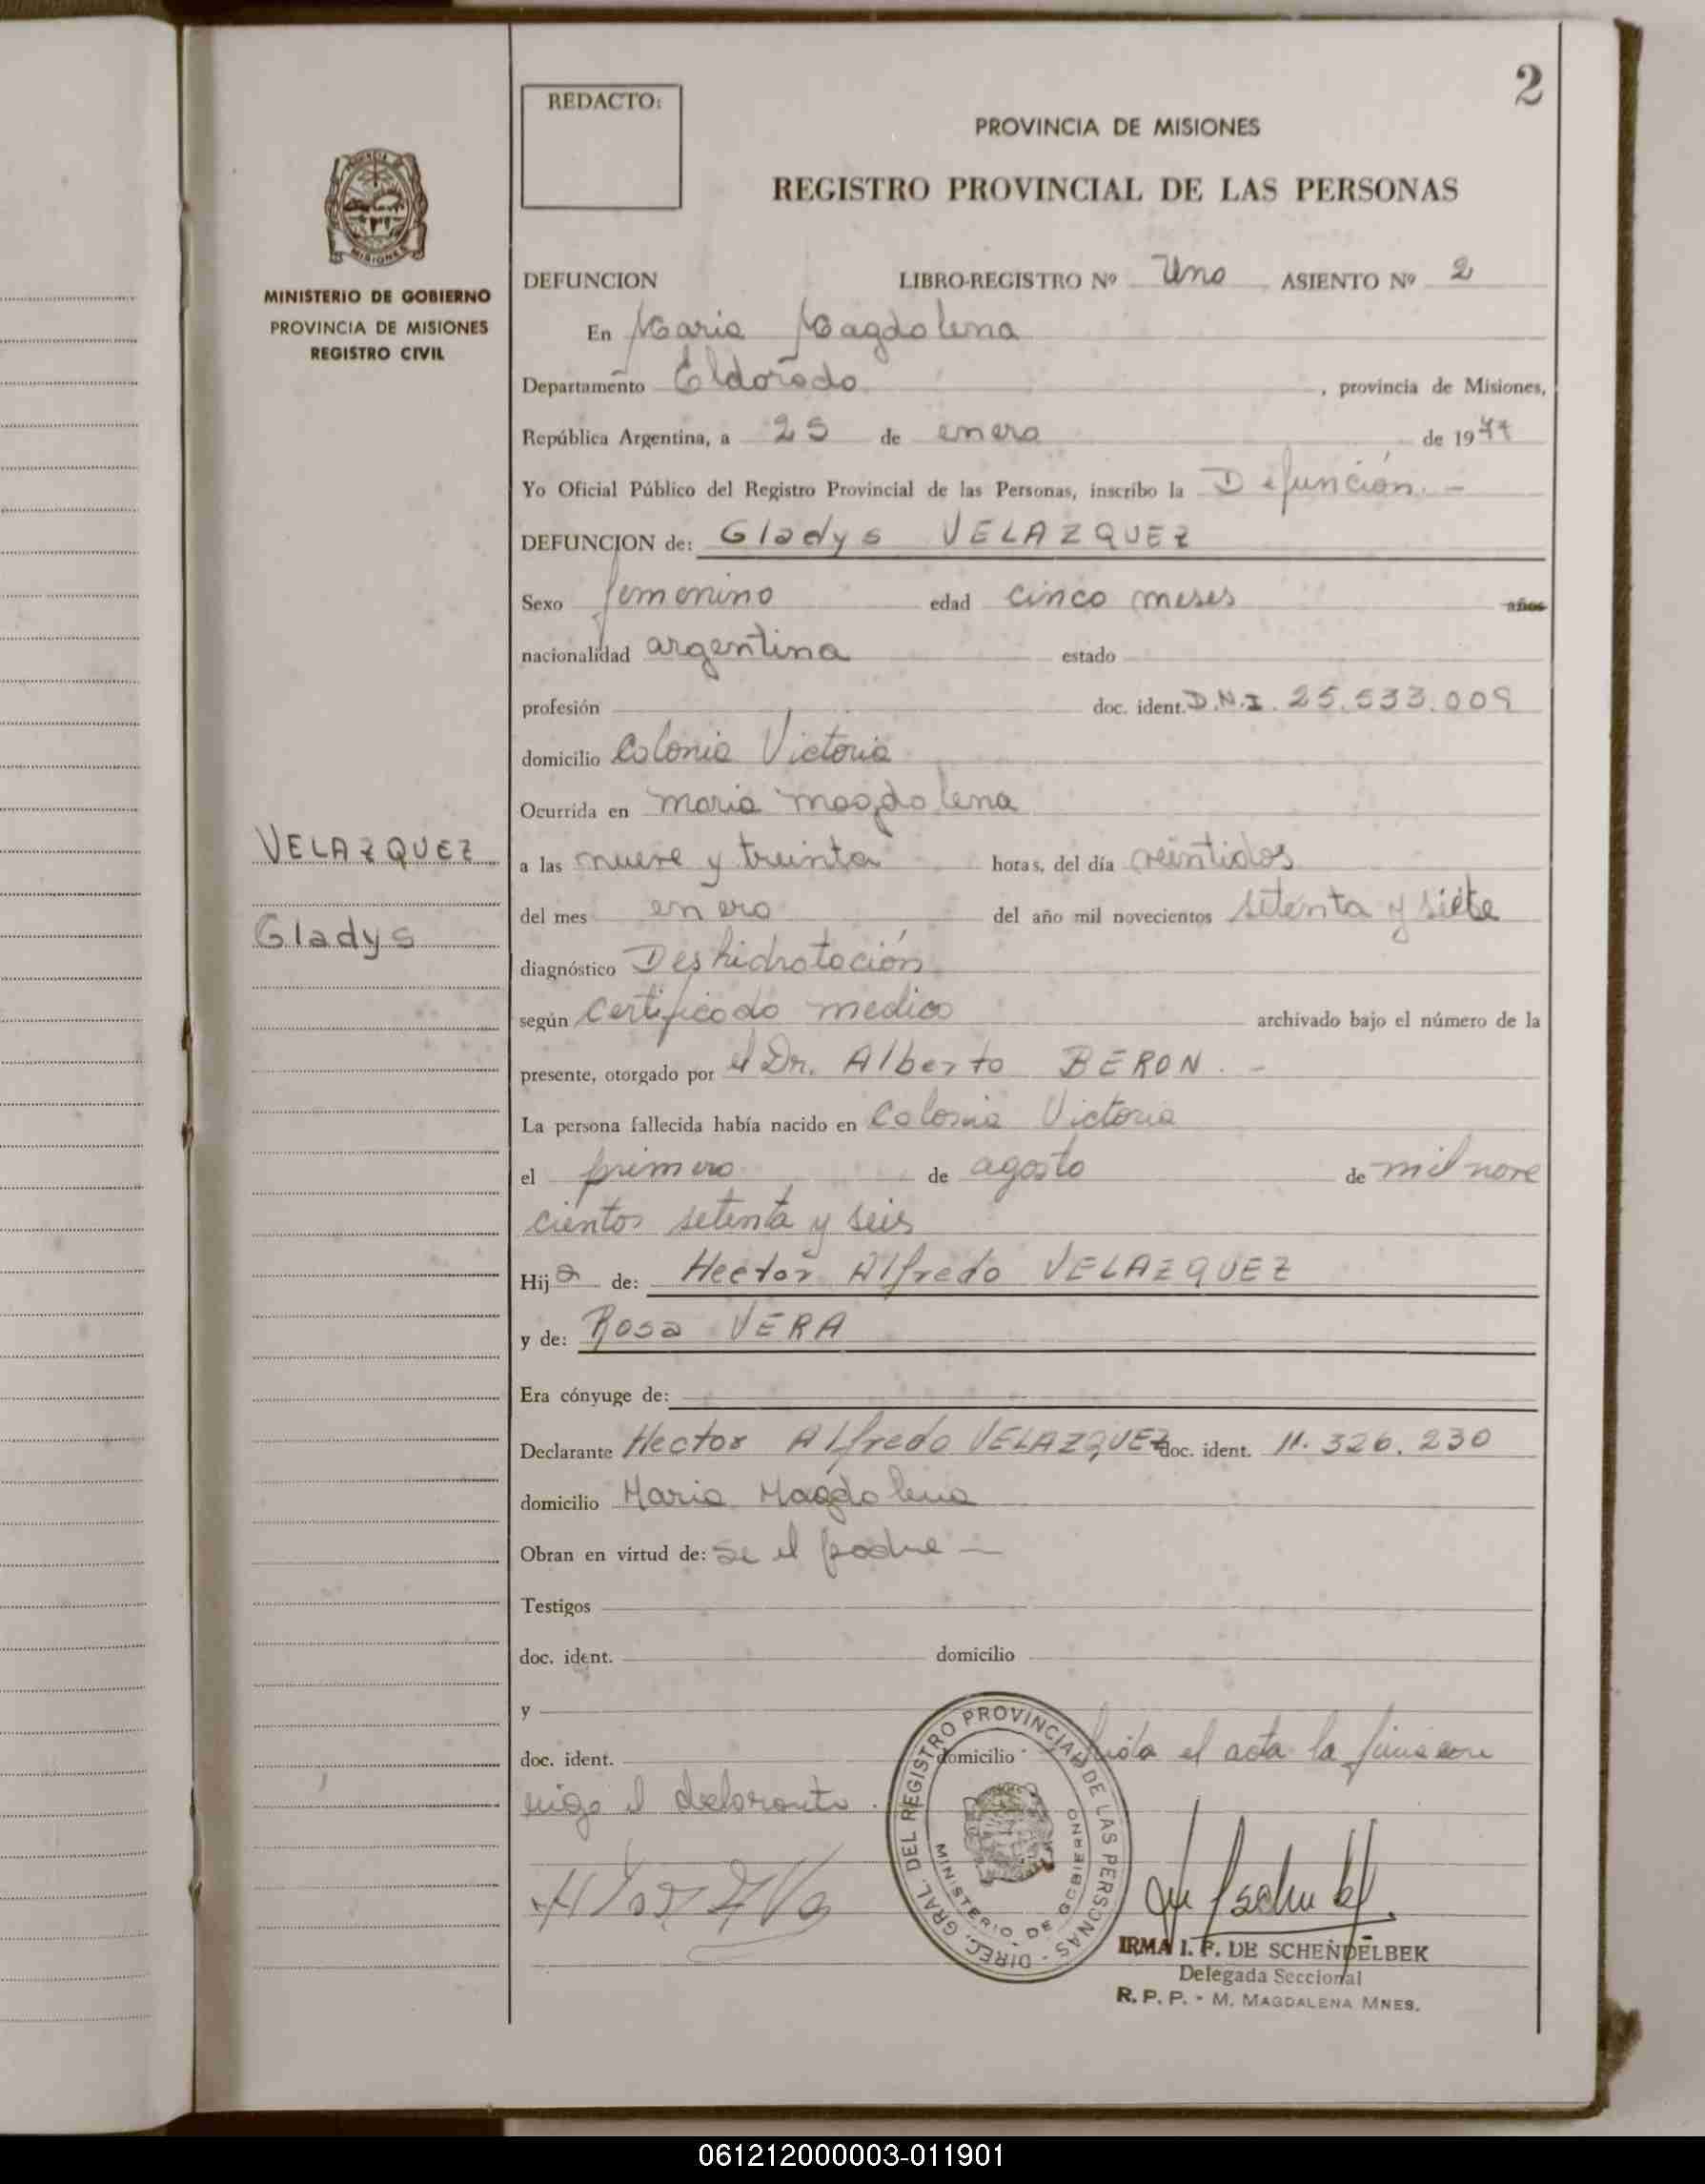 2
REDACTO:
PROVINCIA DE MISIONES
REGISTRO PROVINCIAL DE LAS PERSONAS
PROVINCIA DE
MISIONES
MINISTERIO DE GOBIERNO
PROVINCIA DE MISIONES
REGISTRO CIVIL
VELAZQUEZ
Gladys
DEFUNCION LIBRO-REGISTRO Nº Uno ASIENTO Nº 2
En Maria Magdalena
Departamento Eldorado, provincia de Misiones,
República Argentina, a 25 de enero de 1977
Yo Oficial Público del Registro Provincial de las Personas, inscribo la Defunción.-
DEFUNCION de: Gladys VELAZQUEZ
Sexo femenino edad cinco meses años
nacionalidad argentina estado
profesión doc. ident. D.N.I. 25.533.009
domicilio Colonia Victoria
Ocurrida en maria magdalena
a las nueve y treinta horas, del día veintidos
del mes enero del año mil novecientos setenta y siete
diagnóstico Deshidratación
según certificado medico archivado bajo el número de la
presente, otorgado por el Dr. Alberto BERON.-
La persona fallecida había nacido en Colonia Victoria
el primero de agosto de mil nove
cientos setenta y seis
Hija de: Hector Alfredo VELAZQUEZ
y de: Rosa VERA
Era cónyuge de:
Declarante Hector Alfredo VELAZQUEZ doc. ident. 11.326.230
domicilio Maria Magdalena
Obran en virtud de: se el padre —
Testigos
doc. ident. domicilio
y
doc. ident. domicilio el acta la
el declarante.
DIREC. GRAL. DEL REGISTRO PROVINCIAL DE LAS PERSONAS -
MINISTERIO DE GOBIERNO
IRMA I. F. DE SCHENDELBEK
Delegada Seccional
R. P. P. - M. MAGDALENA MNES.
061212000003-011901